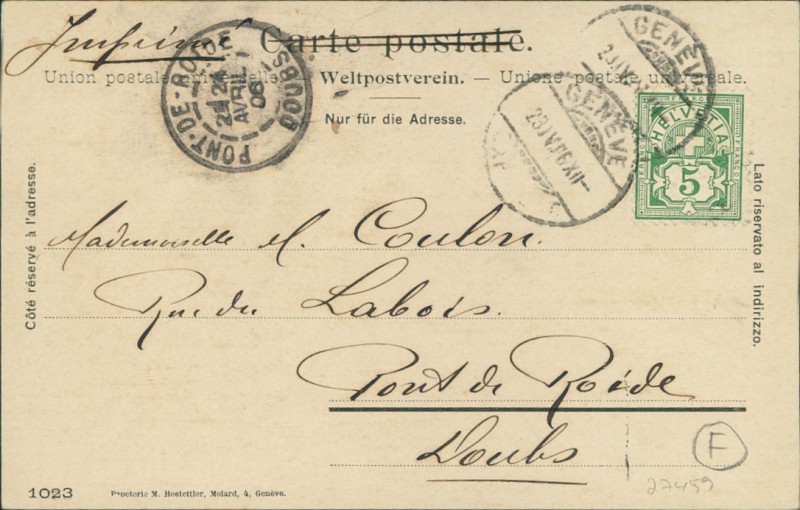 Imprimé Carte postale.
Union postale universelle. — Weltpostverein. — Unione postale universale.
Nur für die Adresse.
PONT-DE-ROIDE
DOUBS
24
AVRIL
06
GENÈVE
GENÈVE
23 IV 06 XII
HELVETIA
5
FRANCO
Côté réservé à l'adresse.
Lato riservato al indirizzo.
Mademoiselle M. Coulon.
Rue du Labois.
Pont de Roide
Doubs
F
27459
1023
Papeterie M. Hostettler, Molard, 4, Genève.